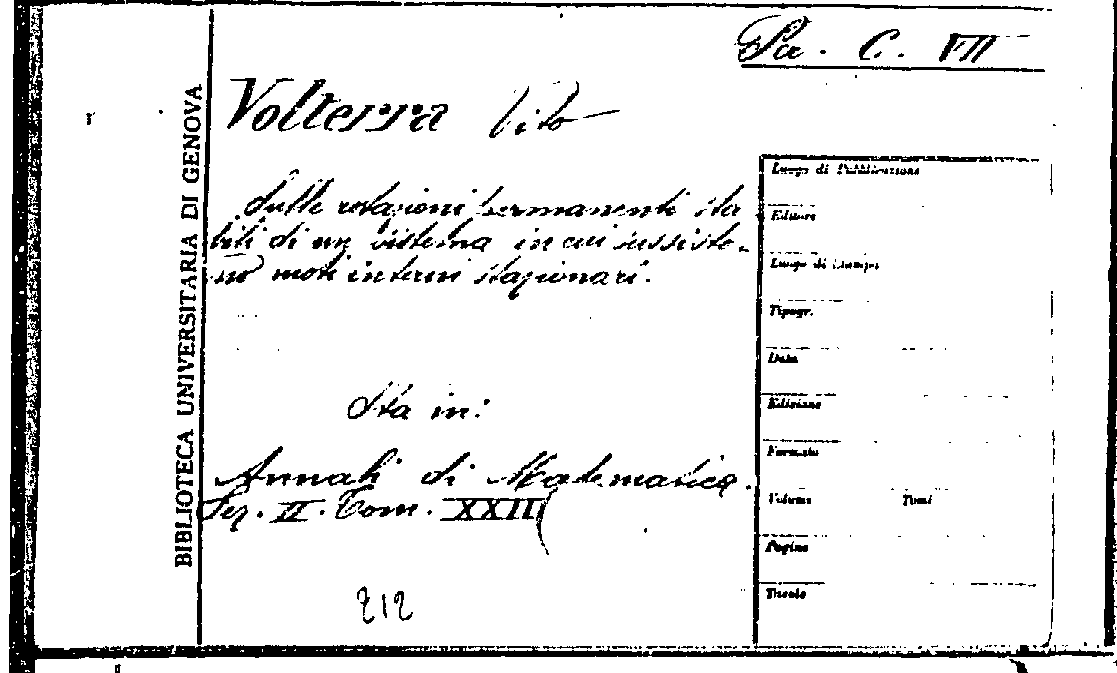 Per. C. VII
BIBLIOTECA UNIVERSITARIA DI GENOVA
Volterra Vito
Sulle rotazioni permanenti sta
bili di un sistema in cui sussisto-
no moti interni stazionari.
Sta in:
Annali di Matematica.
Ser. II. Tom. XXIII
212
Luogo di Pubblicazione
Editore
Luogo di stampa
Tipogr.
Data
Edizione
Formato
Volume Tomi
Pagine